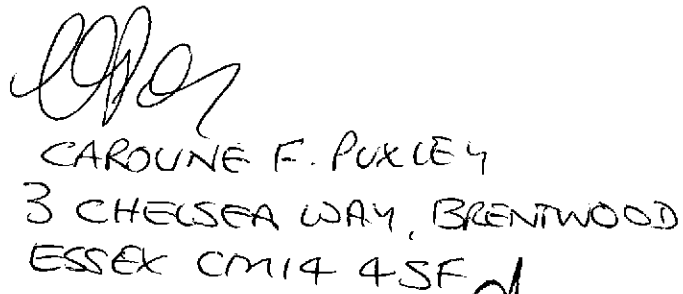 CAROLINE F. PUXLEY
3 CHELSEA WAY, BRENTWOOD
ESSEX CM14 4SF